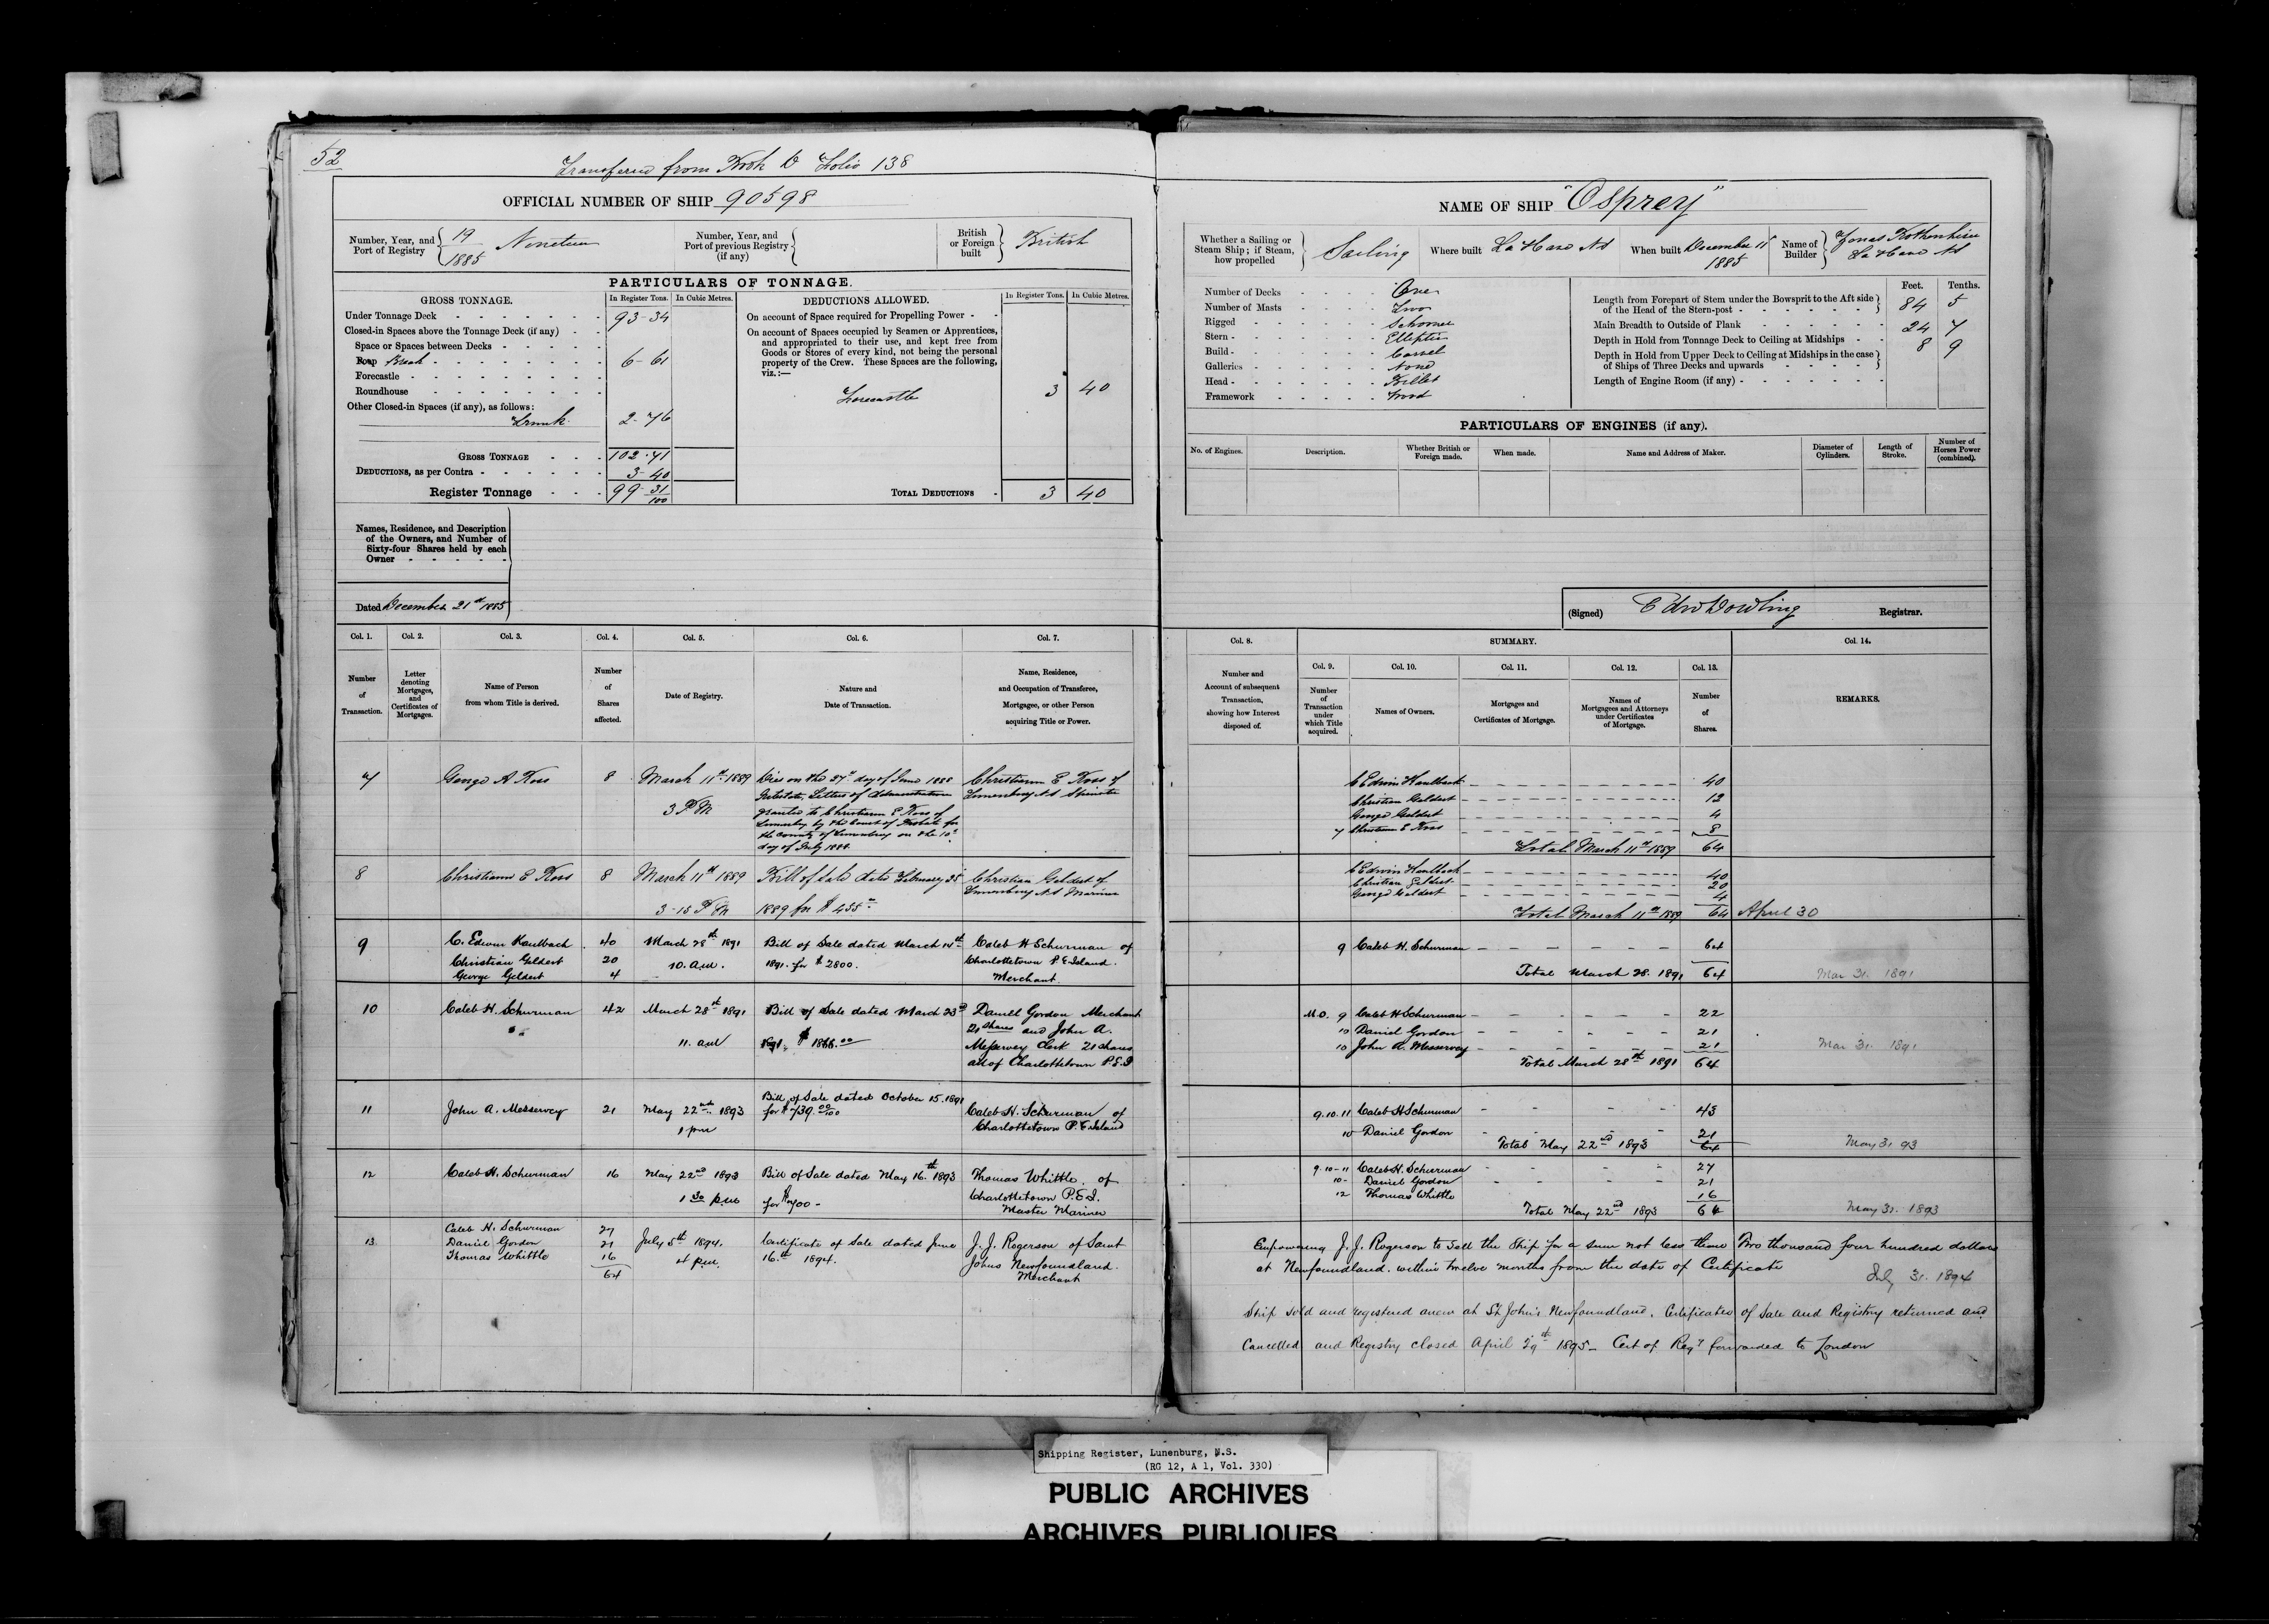 52
Transferred from Book D Folio 138
OFFICIAL NUMBER OF SHIP 90598
Number, Year, and Port of Registry
19
1885
Nineteen
Number, Year, and Port of previous Registry (if any)
British or Foreign built
British
PARTICULARS OF TONNAGE.
GROSS TONNAGE.
In Register Tons.
In Cubic Metres.
DEDUCTIONS ALLOWED.
In Register Tons.
In Cubic Metres.
Under Tonnage Deck 93-34
Closed-in Spaces above the Tonnage Deck (if any)
Space or Spaces between Decks
Poop Break 6-61
Forecastle
Roundhouse
Other Closed-in Spaces (if any), as follows:
Trunk 2-76
GROSS TONNAGE 102.71
DEDUCTIONS, as per Contra 3-40
Register Tonnage 99 31/100
On account of Space required for Propelling Power
On account of Spaces occupied by Seamen or Apprentices,
and appropriated to their use, and kept free from
Goods or Stores of every kind, not being the personal
property of the Crew. These Spaces are the following,
viz.:—
Forecastle 3 40
TOTAL DEDUCTIONS 3 40
Names, Residence, and Description
of the Owners, and Number of
Sixty-four Shares held by each
Owner
Dated December 21st 1885
Col. 1. Col. 2. Col. 3. Col. 4. Col. 5. Col. 6. Col. 7.
Number of Transaction.
Letter denoting Mortgages, and Certificates of Mortgages.
Name of Person from whom Title is derived.
Number of Shares affected.
Date of Registry.
Nature and Date of Transaction.
Name, Residence, and Occupation of Transferee, Mortgagee, or other Person acquiring Title or Power.
7 George A Ross 8 March 11th 1889
3 PM
Died on the 27th day of June 1888
Intestate, Letters of Administration
granted to Christiann E Ross of
Lunenburg by the Court of Probate for
the County of Lunenburg on the 10th
day of July 1888
Christiann E Ross of
Lunenburg N.S Spinster
8 Christiann E Ross 8 March 11th 1889
3-15 PM
Bill of Sale dated February 25
1889 for $435
Christian Geldert of
Lunenburg N.S Mariner
9 C. Edwin Kaulback 40
Christian Geldert 20
George Geldert 4
March 28th 1891
10. a.m.
Bill of Sale dated March 14th
1891. for $2800.
Caleb H Schurman of
Charlottetown P.E Island.
Merchant.
10 Caleb H. Schurman 42
March 28th 1891
11. a.m
Bill of Sale dated March 23rd
1891. $1866.00
Daniel Gordon Merchant
21 shares and John A.
Messervey Clerk 21 shares
all of Charlottetown P.E.I
11 John A. Messervey 21
May 22nd 1893
1 pm
Bill of Sale dated October 15. 1891
for $739.00/00
Caleb H. Schurman of
Charlottetown P.E. Island
12 Caleb H. Schurman 16
May 22nd 1893
1 30 p.m
Bill of Sale dated May 16th 1893
for $700 -
Thomas Whittle. of
Charlottetown P.E.I.
Master Mariner
13 Caleb H. Schurman 27
Daniel Gordon 21
Thomas Whittle 16
64
July 5th 1894.
4 p.m.
Certificate of Sale dated June
16th 1894.
J. J. Rogerson of Saint
Johns Newfoundland.
Merchant
NAME OF SHIP "Osprey"
Whether a Sailing or Steam Ship; if Steam, how propelled
Sailing
Where built La Have NS
When built December 11 1885
Name of Builder
La Have NS
Number of Decks One
Number of Masts Two
Rigged Schooner
Stern Elliptic
Build Carvel
Galleries None
Head Billet
Framework Wood
Feet. Tenths.
Length from Forepart of Stem under the Bowsprit to the Aft side of the Head of the Stern-post 84 5
Main Breadth to Outside of Plank 24 7
Depth in Hold from Tonnage Deck to Ceiling at Midships 8 9
Depth in Hold from Upper Deck to Ceiling at Midships in the case of Ships of Three Decks and upwards
Length of Engine Room (if any)
PARTICULARS OF ENGINES (if any).
No. of Engines.
Description.
Whether British or Foreign made.
When made.
Name and Address of Maker.
Diameter of Cylinders.
Length of Stroke.
Number of Horses Power (combined).
(Signed) Edw Dowling Registrar.
Col. 8. SUMMARY. Col. 14.
Col. 9. Col. 10. Col. 11. Col. 12. Col. 13.
Number and Account of subsequent Transaction, showing how Interest disposed of.
Number of Transaction under which Title acquired.
Names of Owners.
Mortgages and Certificates of Mortgage.
Names of Mortgagees and Attorneys under Certificates of Mortgage.
Number of Shares.
REMARKS.
C Edwin Kaulback 40
Christian Geldert 12
George Geldert 4
7 Christiann E Ross 8
Total March 11th 1889 64
C Edwin Kaulback 40
Christian Geldert 20
George Geldert 4
Total March 11th 1889 64 April 30
9 Caleb H. Schurman 64
Total March 28. 1891 64 Mar 31. 1891
M.O. 9 Caleb H Schurman 22
10 Daniel Gordon 21
10 John A. Messervey 21 Mar 31. 1891
Total March 28th 1891 64
9.10.11 Caleb H Schurman 43
10 Daniel Gordon 21
Total May 22nd 1893 64 May 31 93
9-10-11 Caleb H. Schurman 27
10- Daniel Gordon 21
12 Thomas Whittle 16
Total May 22nd 1893 64 May 31. 1893
Empowering J. J. Rogerson to sell the Ship for a sum not less than Two thousand four hundred dollars
at Newfoundland. within twelve months from the date of Certificate
July 31. 1894
Ship sold and registered anew at St John's Newfoundland. Certificates of Sale and Registry returned and
Cancelled and Registry closed April 29th 1895 - Cert of Regy forwarded to London
Shipping Register, Lunenburg, N.S.
(RG 12, A 1, Vol. 330)
PUBLIC ARCHIVES
ARCHIVES PUBLIQUES